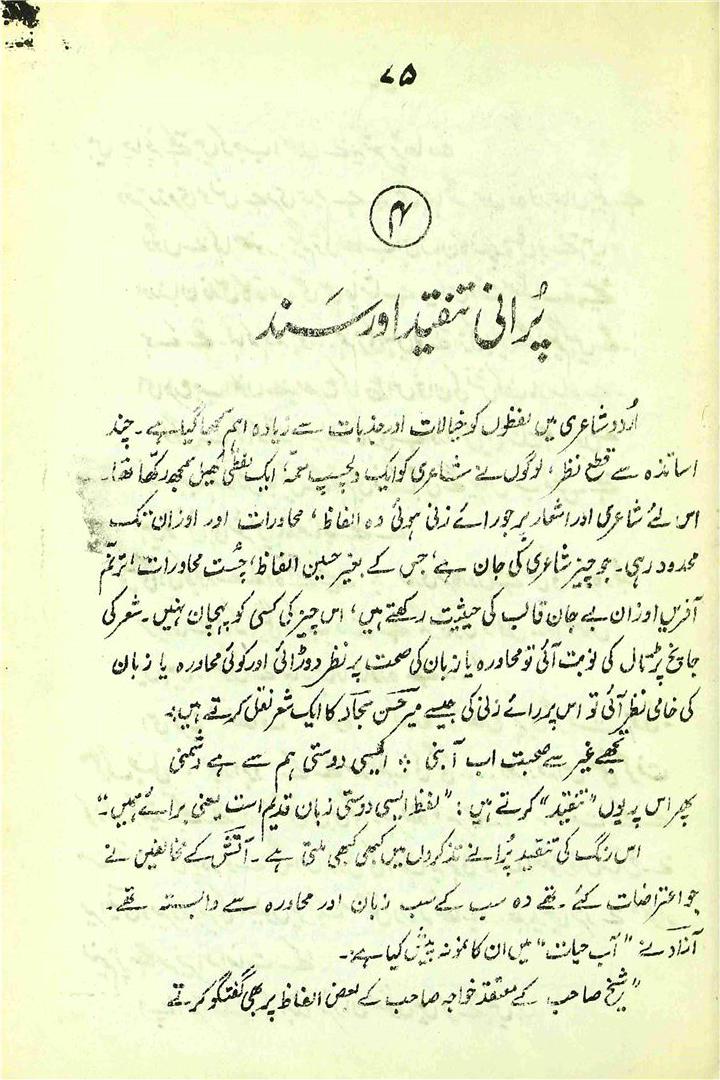 ۷۵
۴
پُرانی تنقید اور سَند
اُردو شاعری میں لفظوں کو خیالات اور جذبات سے زیادہ اہم سمجھا گیا ہے۔ چند
اساتذہ سے قطع نظر، لوگوں نے شاعری کو ایک دلچسپ معمّہ، ایک لفظی کھیل سمجھ رکھّا تھا۔
اس لئے شاعری اور اشعار پر جو رائے زنی ہوئی وہ الفاظ، محاورات اور اوزان تک
محدود رہی۔ جو چیز شاعری کی جان ہے، جس کے بغیر حسین الفاظ، چُست محاورات، ترنّم
آفریں اوزان بے جان قالب کی حیثیت رکھتے ہیں، اس چیز کی کسی کو پہچان نہیں۔ شعر کی
جانچ پڑتال کی نوبت آئی تو محاورہ یا زبان کی صحت پر نظر دوڑائی اور کوئی محاورہ یا زبان
کی خامی نظر آئی تو اس پر رائے زنی کی جیسے میر حسن سجاد کا ایک شعر نقل کرتے ہیں:۔
تجھے غیر سے صحبت اب آ بنی ÷ ایسی دوستی ہم سے ہے دشمنی
پھر اس پر یوں "تنقید" کرتے ہیں: "لفظ ایسی دوستی زبان قدیم است یعنی برائے ہمیں۔"
اس رنگ کی تنقید پُرانے تذکروں میں کبھی کبھی ملتی ہے۔ آتش کے مخالفین نے
جو اعتراضات کئے تھے وہ سب کے سب زبان اور محاورہ سے وابستہ تھے۔
آزاد نے "آب حیات" میں ان کا نمونہ پیش کیا ہے:۔
"شیخ صاحب کے معتقد خواجہ صاحب کے بعض الفاظ پر بھی گفتگو کرتے